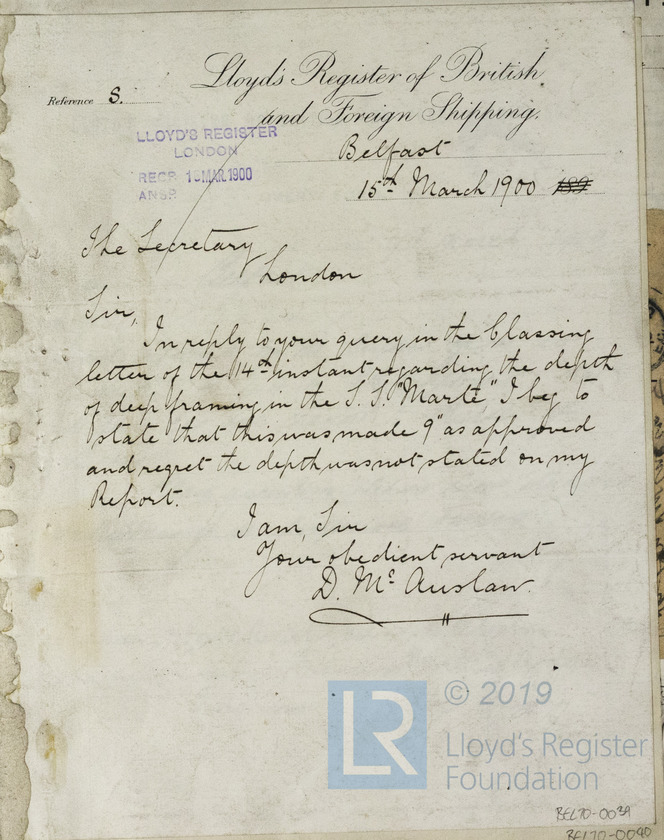 Lloyd's Register of British
Reference S.
and Foreign Shipping.
LLOYD'S REGISTER
LONDON
RECD. 16 MAR. 1900
ANSD.
Belfast
15th March 1900 189
The Secretary
London
Sir,
In reply to your query in the Classing
letter of the 14th instant regarding the depth
of deep framing in the S.S. "Marte," I beg to
state that this was made 9" as approved
and regret the depth was not stated on my
Report.
I am, Sir
Your obedient servant
D. McAuslan.
LR
© 2019
Lloyd's Register
Foundation
BEL70-0039
BEL70-0040